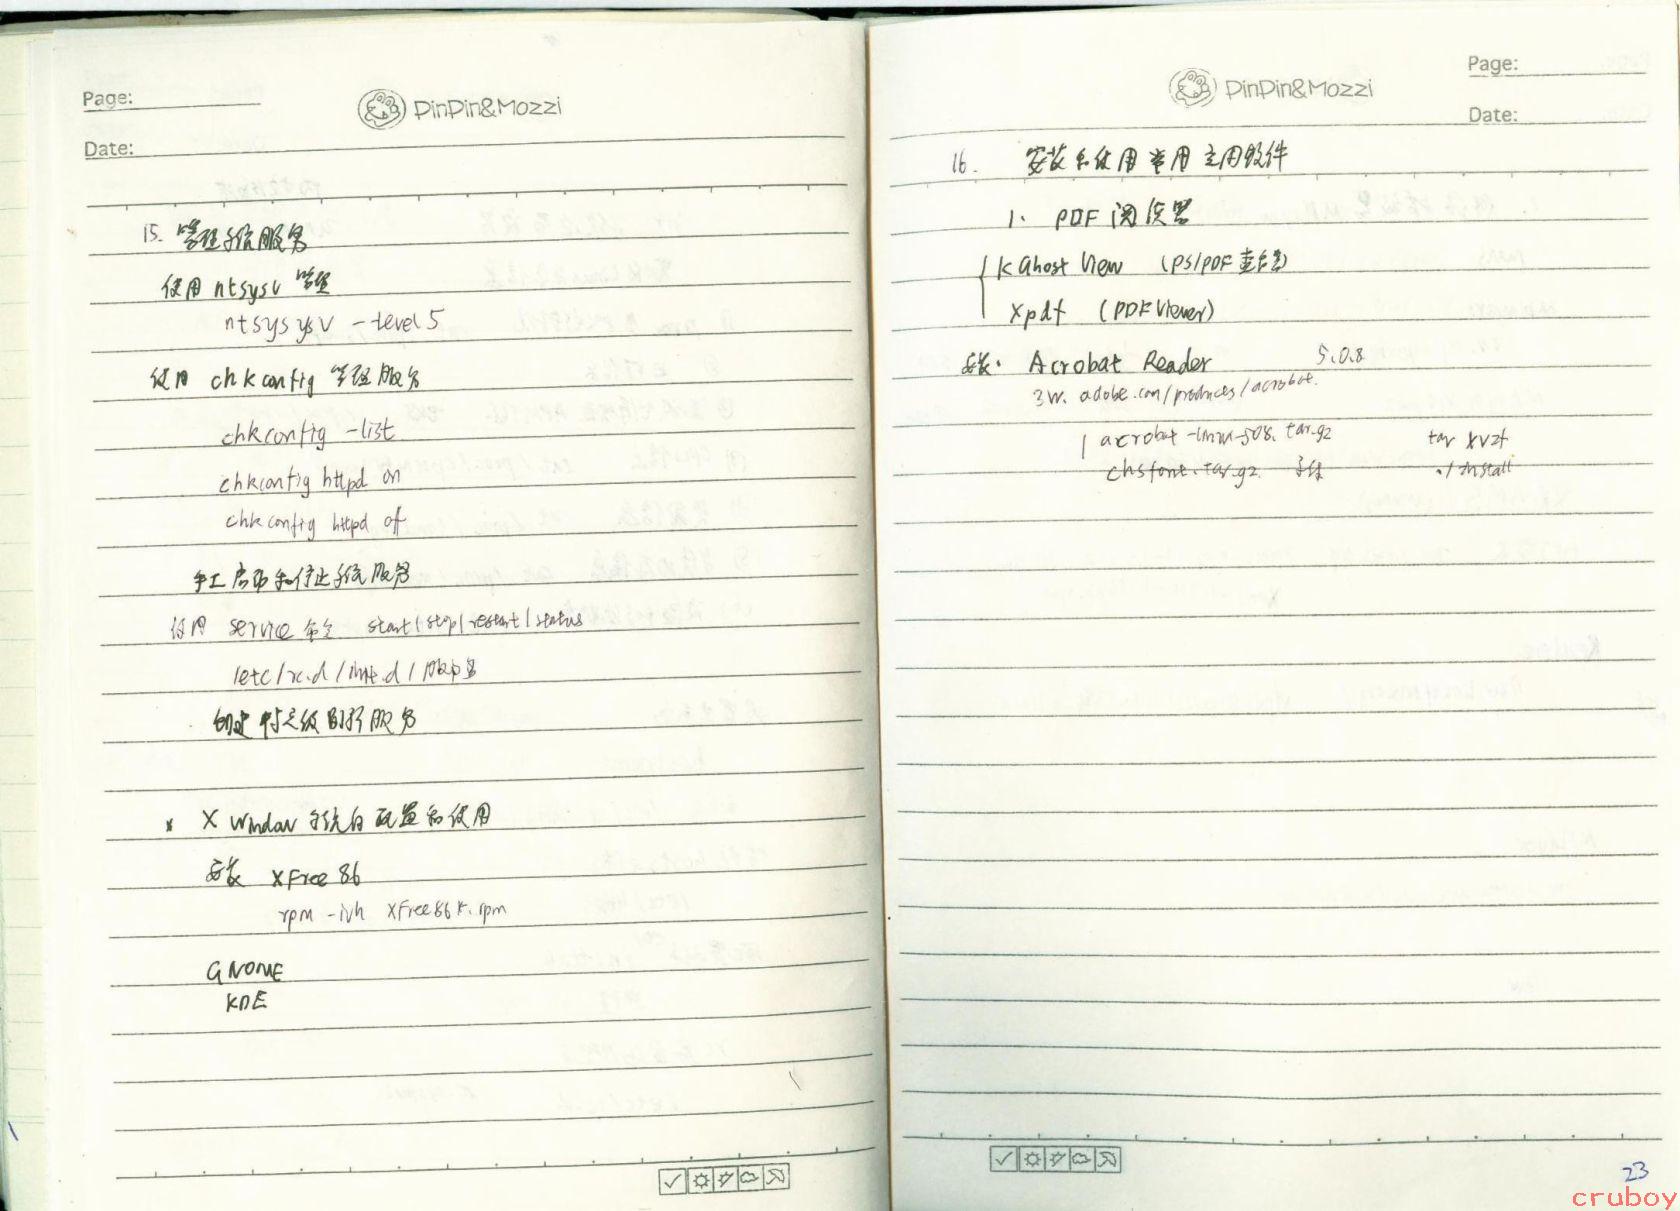 Page:
PinPin&Mozzi
Date:
15. 管理系统服务
使用 ntsysv 管理
ntsysysv -level 5
使用 chkconfig 管理服务
chkconfig -list
chkconfig httpd on
chkconfig httpd of
手工启动和停止系统服务
使用 service 命令 start/stop/restart/status
/etc/rc.d/init.d/
创建 特定级别的服务
* X Window 系统的配置和使用
安装 XFree 86
rpm -ivh XFree86*.rpm
GNOME
KDE
Page:
PinPin&Mozzi
Date:
16. 安装和使用常用应用软件
1. PDF 阅读器
KGhost View (PS/PDF 查看)
Xpdf (PDF Viewer)
安装. Acrobat Reader 5.0.8
3w. adobe.com/produces/acrobat.
acrobat -linux-508. tar.gz tar xvzf
chsfont.tar.gz. ./install
23
cruboy